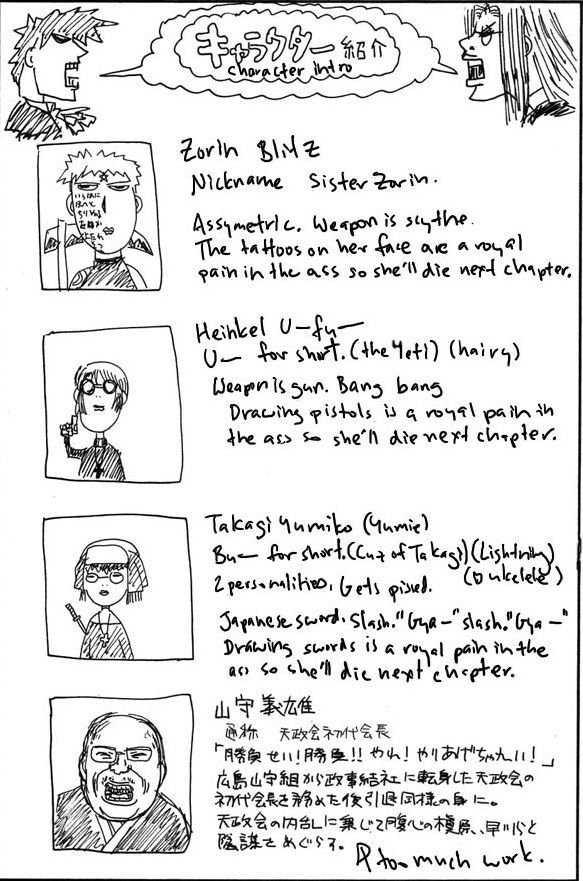 キャラクター紹介
character intro
Zorin Blitz
Nickname Sister Zorin.
Assymetric. Weapon is scythe.
The tattoos on her face are a royal
pain in the ass so she'll die next chapter.
Heinkel U-fu-
U- for short. (the Yeti) (hairy)
Weapon is gun. Bang bang
Drawing pistols is a royal pain in
the ass so she'll die next chapter.
Takagi Yumiko (Yumie)
Bu- for short. (Cuz of Takagi) (Lightning)
(ukelele)
2 personalities. Gets pissed.
Japanese sword. Slash. "Gya-" slash. "Gya-"
Drawing swords is a royal pain in the
ass so she'll die next chapter.
山守義雄
通称 天政会初代会長
「勝負せい!勝負!!やれ!やりあげちゃれい!」
広島山守組から政事結社に転身した天政会の
初代会長を務めた後引退同様の身に。
天政会の内乱に乗じて腹心の槇原、早川らと
陰謀をめぐらす。
too much work.